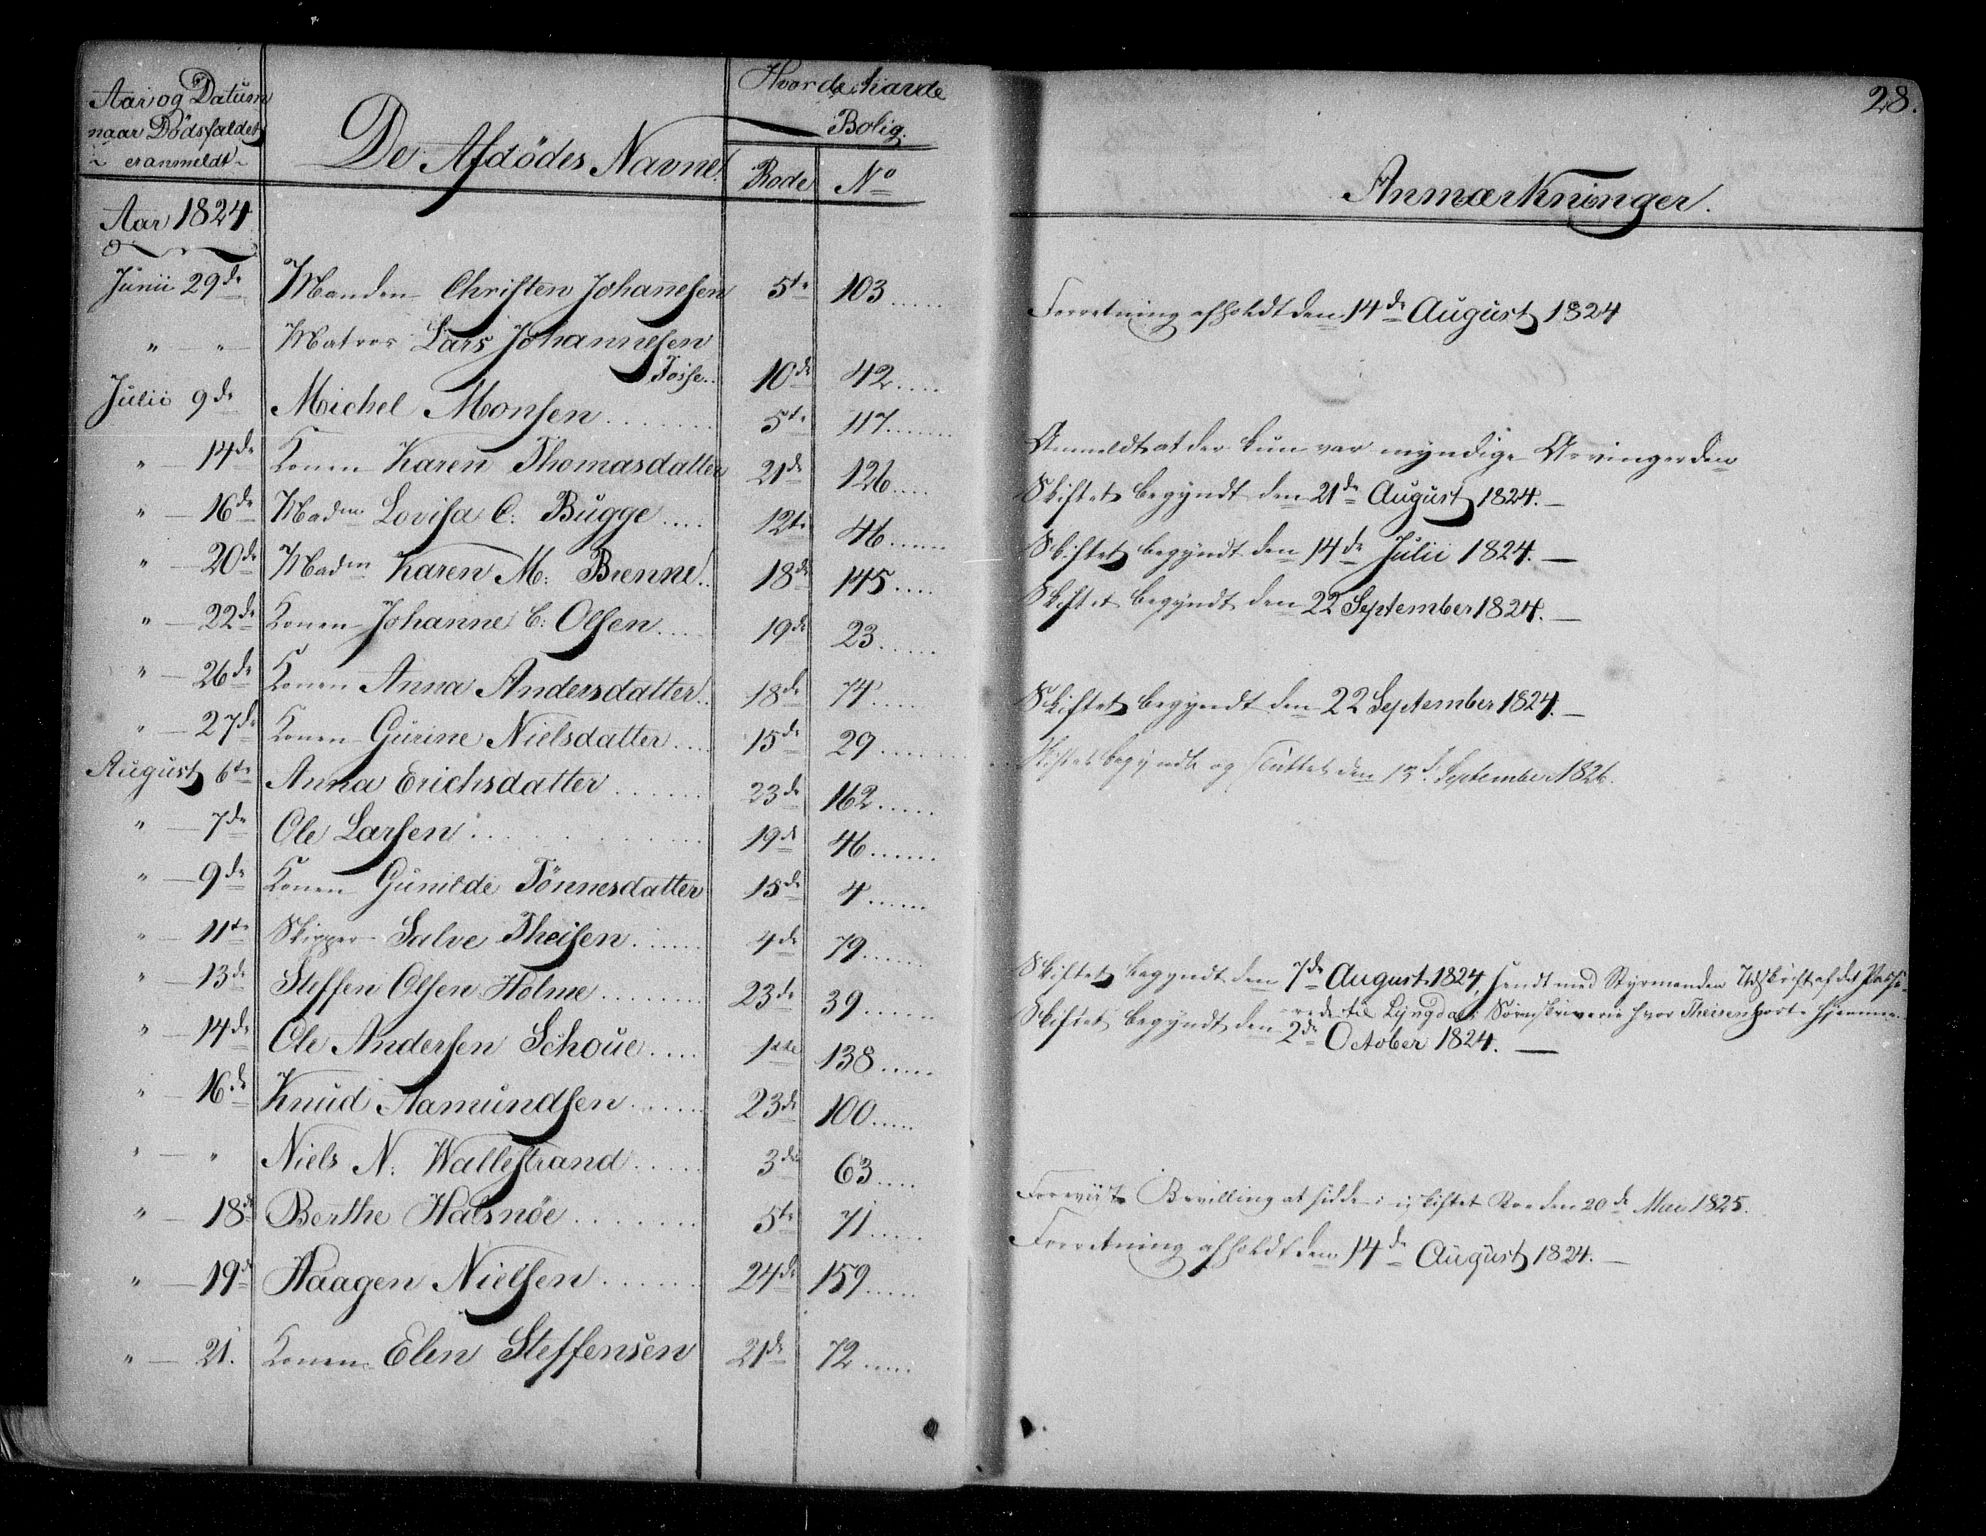 Aar og Datum
naar Dødsfaldet
er anmeldt
De Afdødes Navne.
Hvor de havde
Bolig.
Rode
No
Aar 1824
Junii 29de Manden Christen Johanesen 5te 103
" — " — Matros Lars Johannesen
Josse 10de 42
Julii 9de Michel Monsen 5te 117
" — 14de Konen Karen Thomasdatter 21de 126
" — 16de Madm Lovisa C: Bugge 12te 46
" — 20de Madm Karen M: Bienne 18de 145
" — 22de Konen Johanne C: Olsen 19de 23
" — 26de Konen Anna Andersdatter 18de 74
" — 27de Konen Gurine Nielsdatter 15de 29
August 6te Anna Erichsdatter 23de 162
" — 7de Ole Larsen 19de 46
" — 9de Konen Gunilde Tönnesdatter 15de 4
" — 11te Skipper Salve Theisen 4de 79
" — 13de Steffen Olsen Holme 23de 39
" — 14de Ole Andersen Schoue 1ste 138
" — 16de Knud Aamundsen 23de 100
" — " Niels N. Wallestrand 3die 63
" — 18de Berthe Halsnöe 5te 71
" — 19de Haagen Nielsen 24de 159
" — 21. Konen Elen Steffensen 21de 72
28.
Anmærkninger.
Forretning afholdt den 14de August 1824
Anmeldt at der kun var myndige Arvinger den
Skiftet begyndt den 21de August 1824. —
Skiftet begyndt den 14de Julii 1824. —
Skiftet begyndt den 22 September 1824. —
Skiftet begyndt den 22 September 1824. —
Skiftet begyndt og sluttet den 13d September 1826.
Skiftet begyndt den 7de August 1824, sendt med Styrmanden Udskrift af det Passe-
rede til Lyngdals Sörenskriverie hvor Theisen hörte hjemme
Skiftet begyndt den 2de October 1824. —
Foreviist Bevilling at sidde i uskiftet Boe den 20de Mai 1825.
Forretning afholdt den 14de August 1824. —